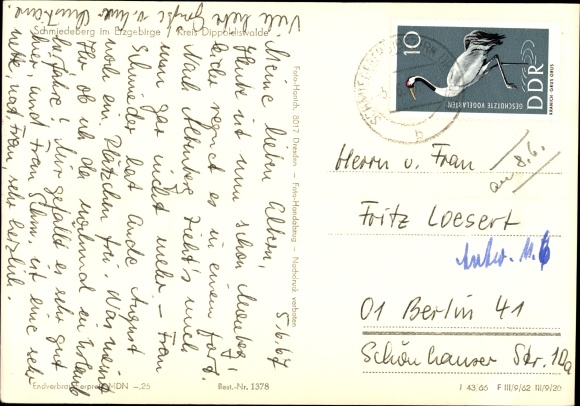 Viele liebe Grüße v. Eure
Schmiedeberg im Erzgebirge / Kreis Dippoldiswalde
5.6.67
Meine lieben Eltern,
Heute ist nun schon Montag,
leider regnet es in einem fort.
Nach Altenberg zieht's mich
nun gar nicht mehr – Frau
Schmieder hat Ende August
noch ein Plätzchen frei. Was meint
Ihr ob ich da nochmal in Urlaub
herfahre? Mir gefällt es sehr gut
hier, und Frau Schm. ist eine sehr
nette Frau, sehr herzlich.
Endverbraucherpreis MDN –,25
Best.-Nr. 1378
Foto-Handh. 8017 Dresden – Foto-Handabzug – Nachdruck verboten
10
DDR
GESCHÜTZTE VOGELARTEN
KRANICH · GRUS GRUS
b
Herrn u. Frau
am 8.6.
Fritz Loesert
Antw. 11.6
01 Berlin 41
Schönhauser Str. 10a
J 43/66 F III/9/62 III/9/20